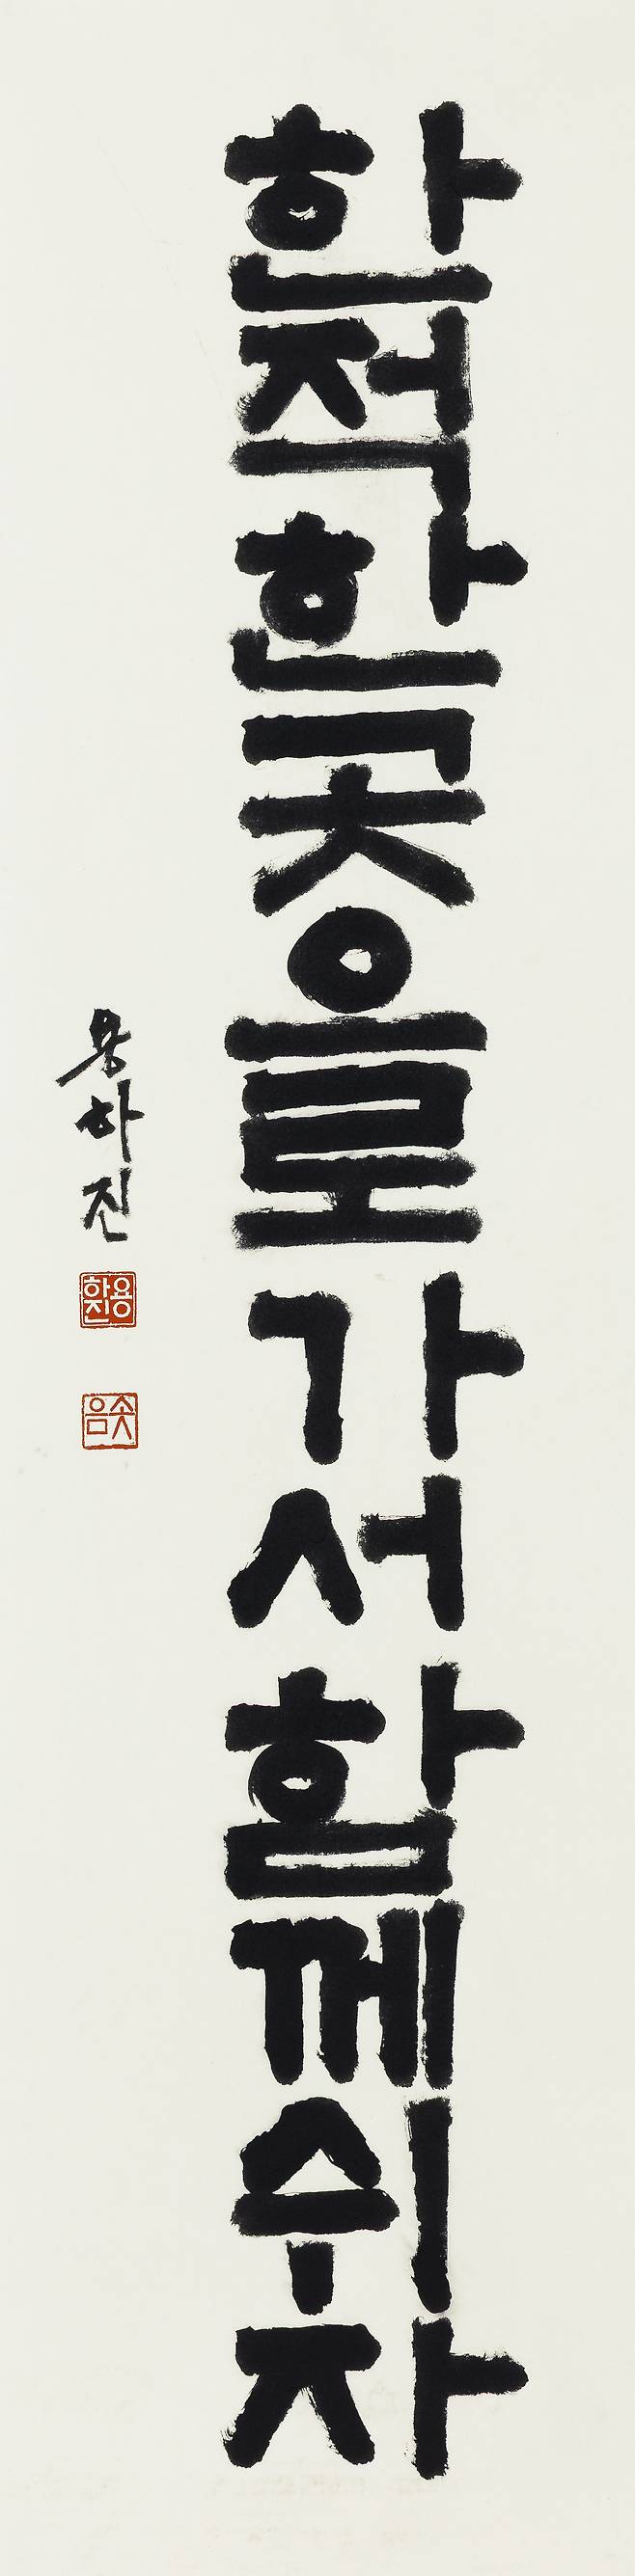 한적한곳으로가서함께쉬자
용하진
용하진
솟음